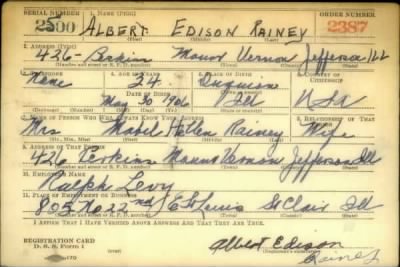 SERIAL NUMBER 1. NAME (Print) ORDER NUMBER
2500 ALBERT EDISON RAINEY 2387
2. ADDRESS (Print)
426 - Perkins Mount Vernon Jefferson Ill
3. TELEPHONE 4. AGE IN YEARS 5. PLACE OF BIRTH 6. COUNTRY OF CITIZENSHIP
None 34 Duquoin
DATE OF BIRTH
May 30 1906 Ill USA
7. NAME OF PERSON WHO WILL ALWAYS KNOW YOUR ADDRESS 8. RELATIONSHIP OF THAT PERSON
Mrs Mabel Hellen Rainey Wife
9. ADDRESS OF THAT PERSON
426 Perkins Mount Vernon Jefferson Ill
10. EMPLOYER'S NAME
Ralph Levy
11. PLACE OF EMPLOYMENT OR BUSINESS
805 No 22nd E St Louis St Clair Ill
I AFFIRM THAT I HAVE VERIFIED ABOVE ANSWERS AND THAT THEY ARE TRUE.
REGISTRATION CARD
D. S. S. Form 1
Albert Edison
Rainey